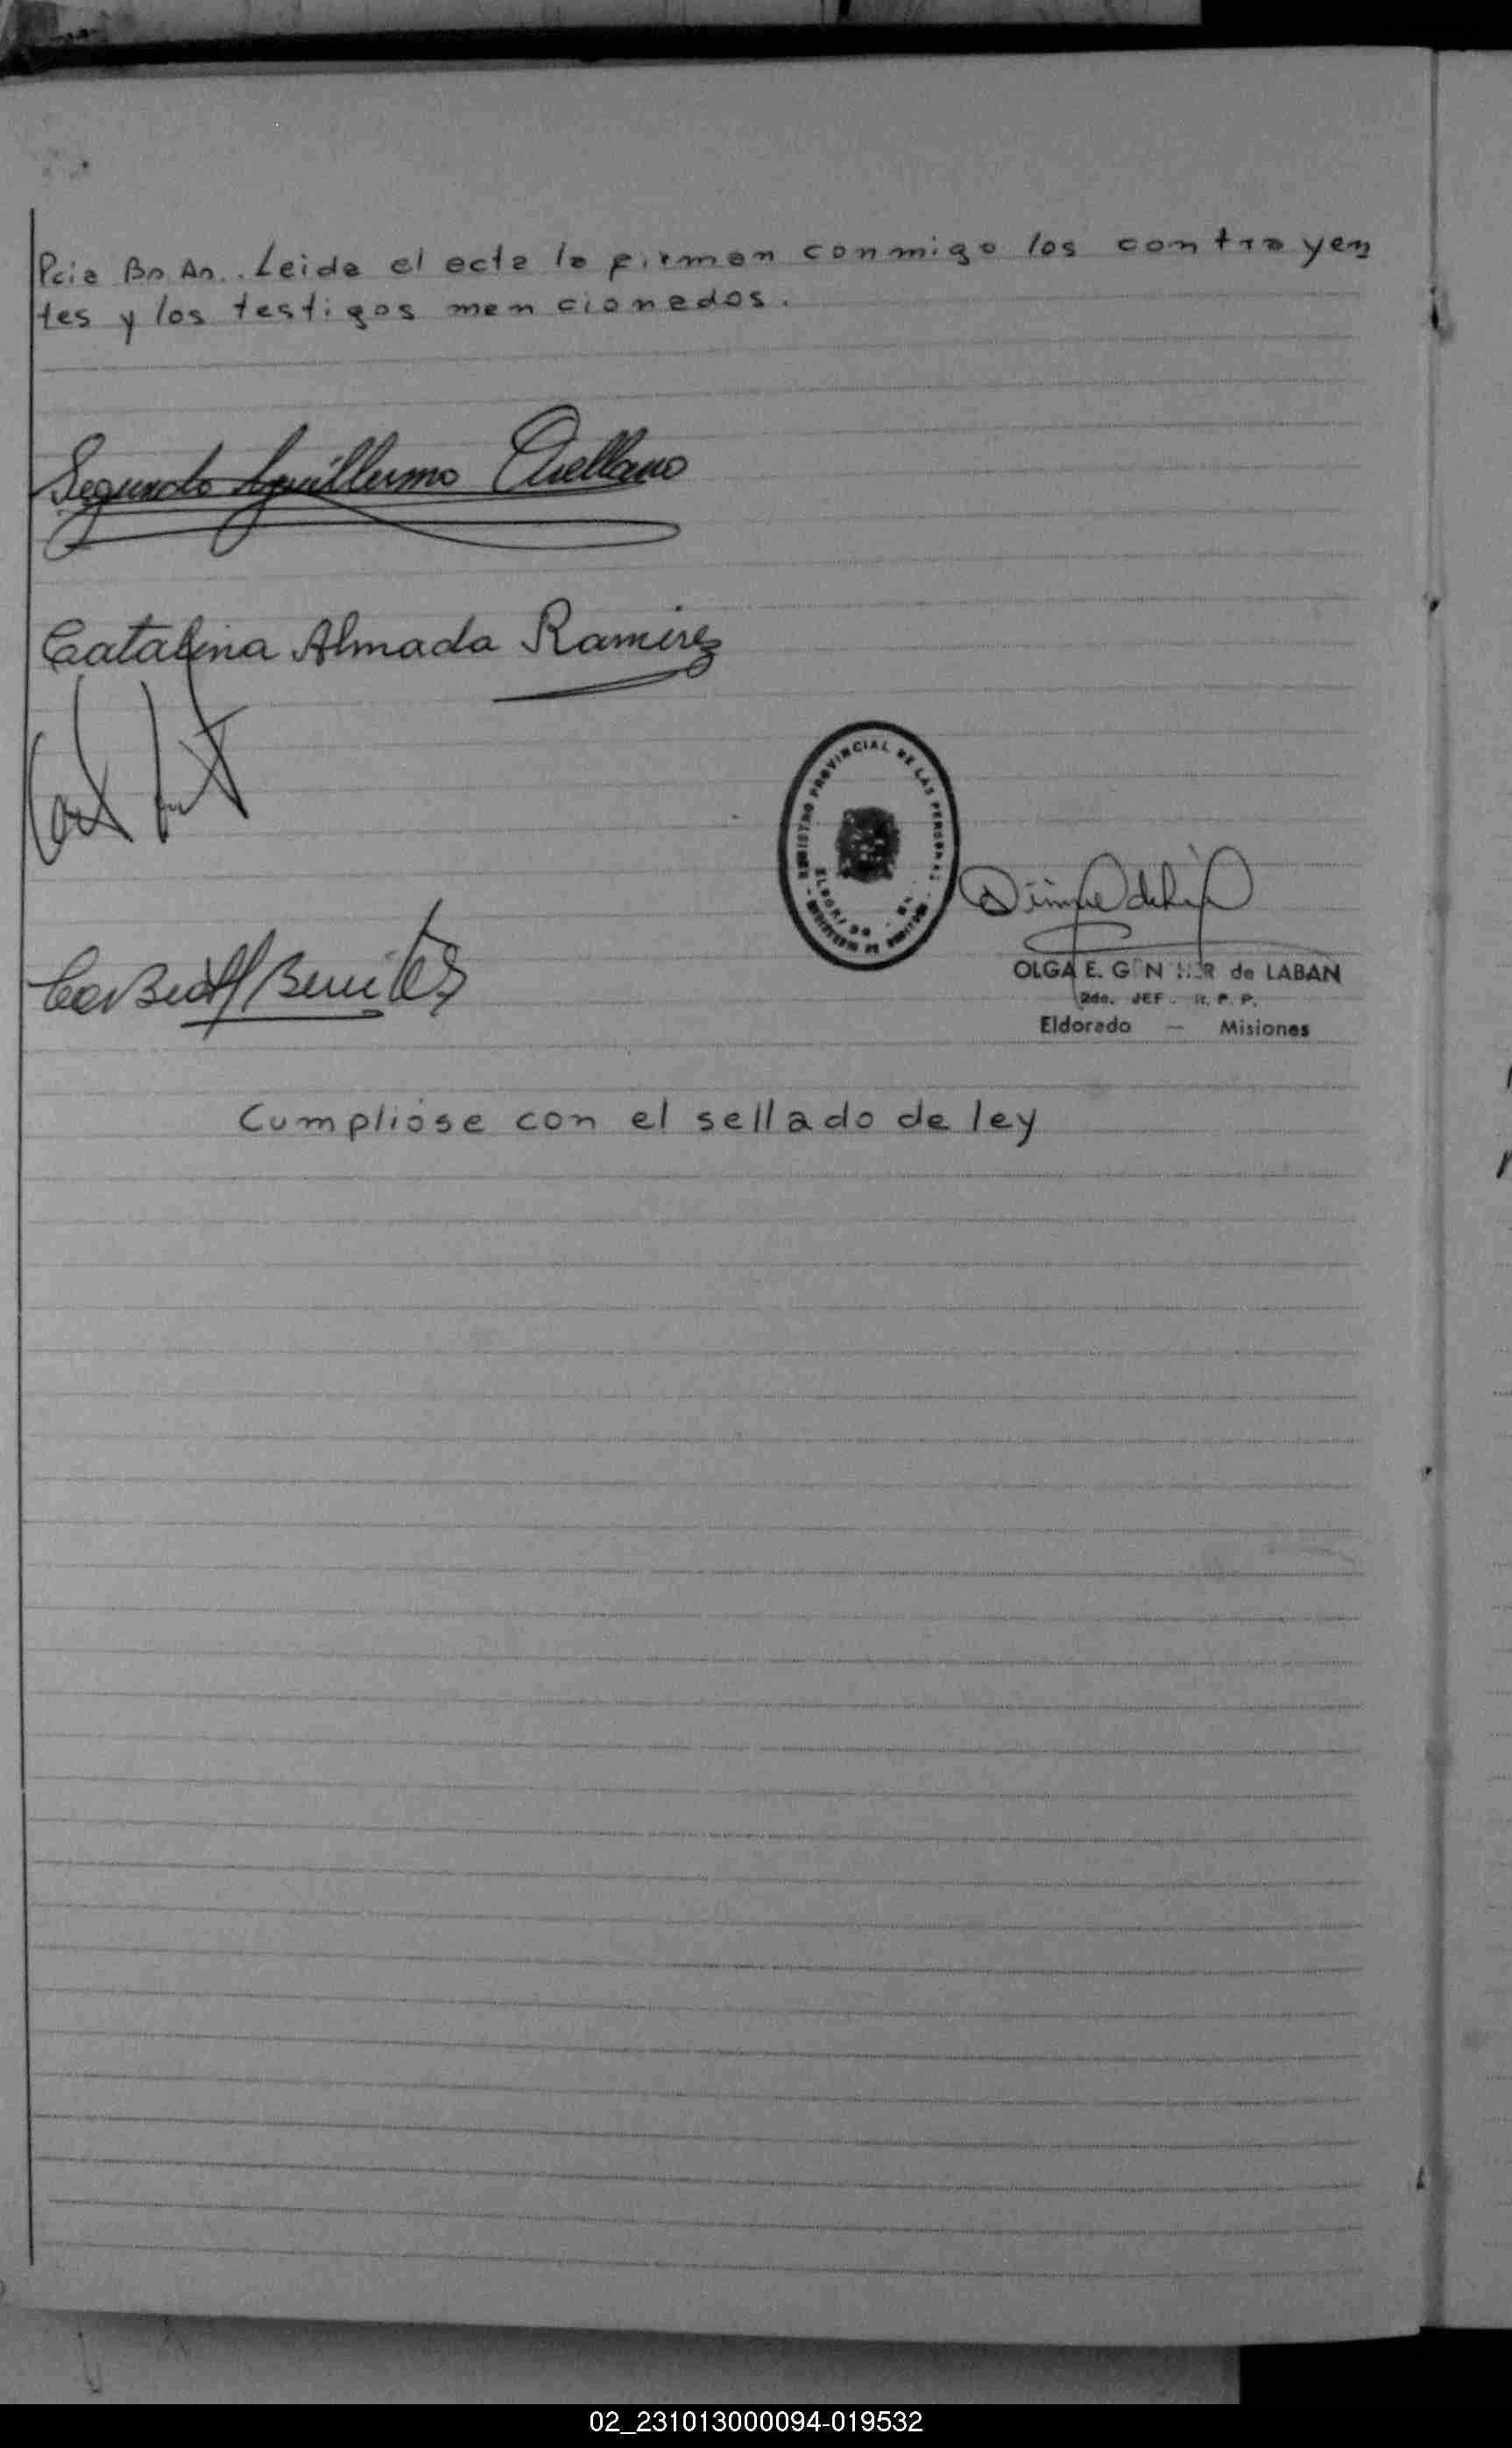 Pcia Bs. As.. Leida el acta la firman conmigo los contrayen
tes y los testigos mencionados.
Segundo Guillermo Orellano
Catalina Almada Ramirez
Benitez
REGISTRO PROVINCIAL DE LAS PERSONAS
ELDORADO
OLGA E. G N H R de LABAN
2do. JEF . R. P. P.
Eldorado — Misiones
Cumplióse con el sellado de ley
02_231013000094-019532